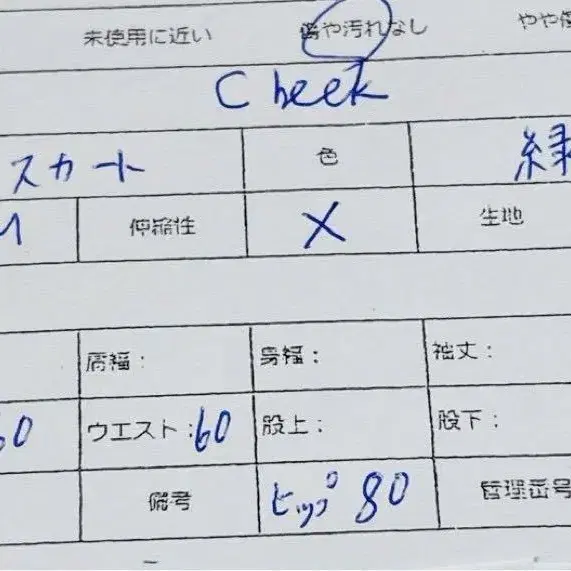 未使用に近い 傷や汚れなし やや傷
Cheek
スカート 色 緑
M 伸縮性 X 生地
肩幅: 身幅: 袖丈:
60 ウエスト:60 股上: 股下:
備考 ヒップ 80 管理番号